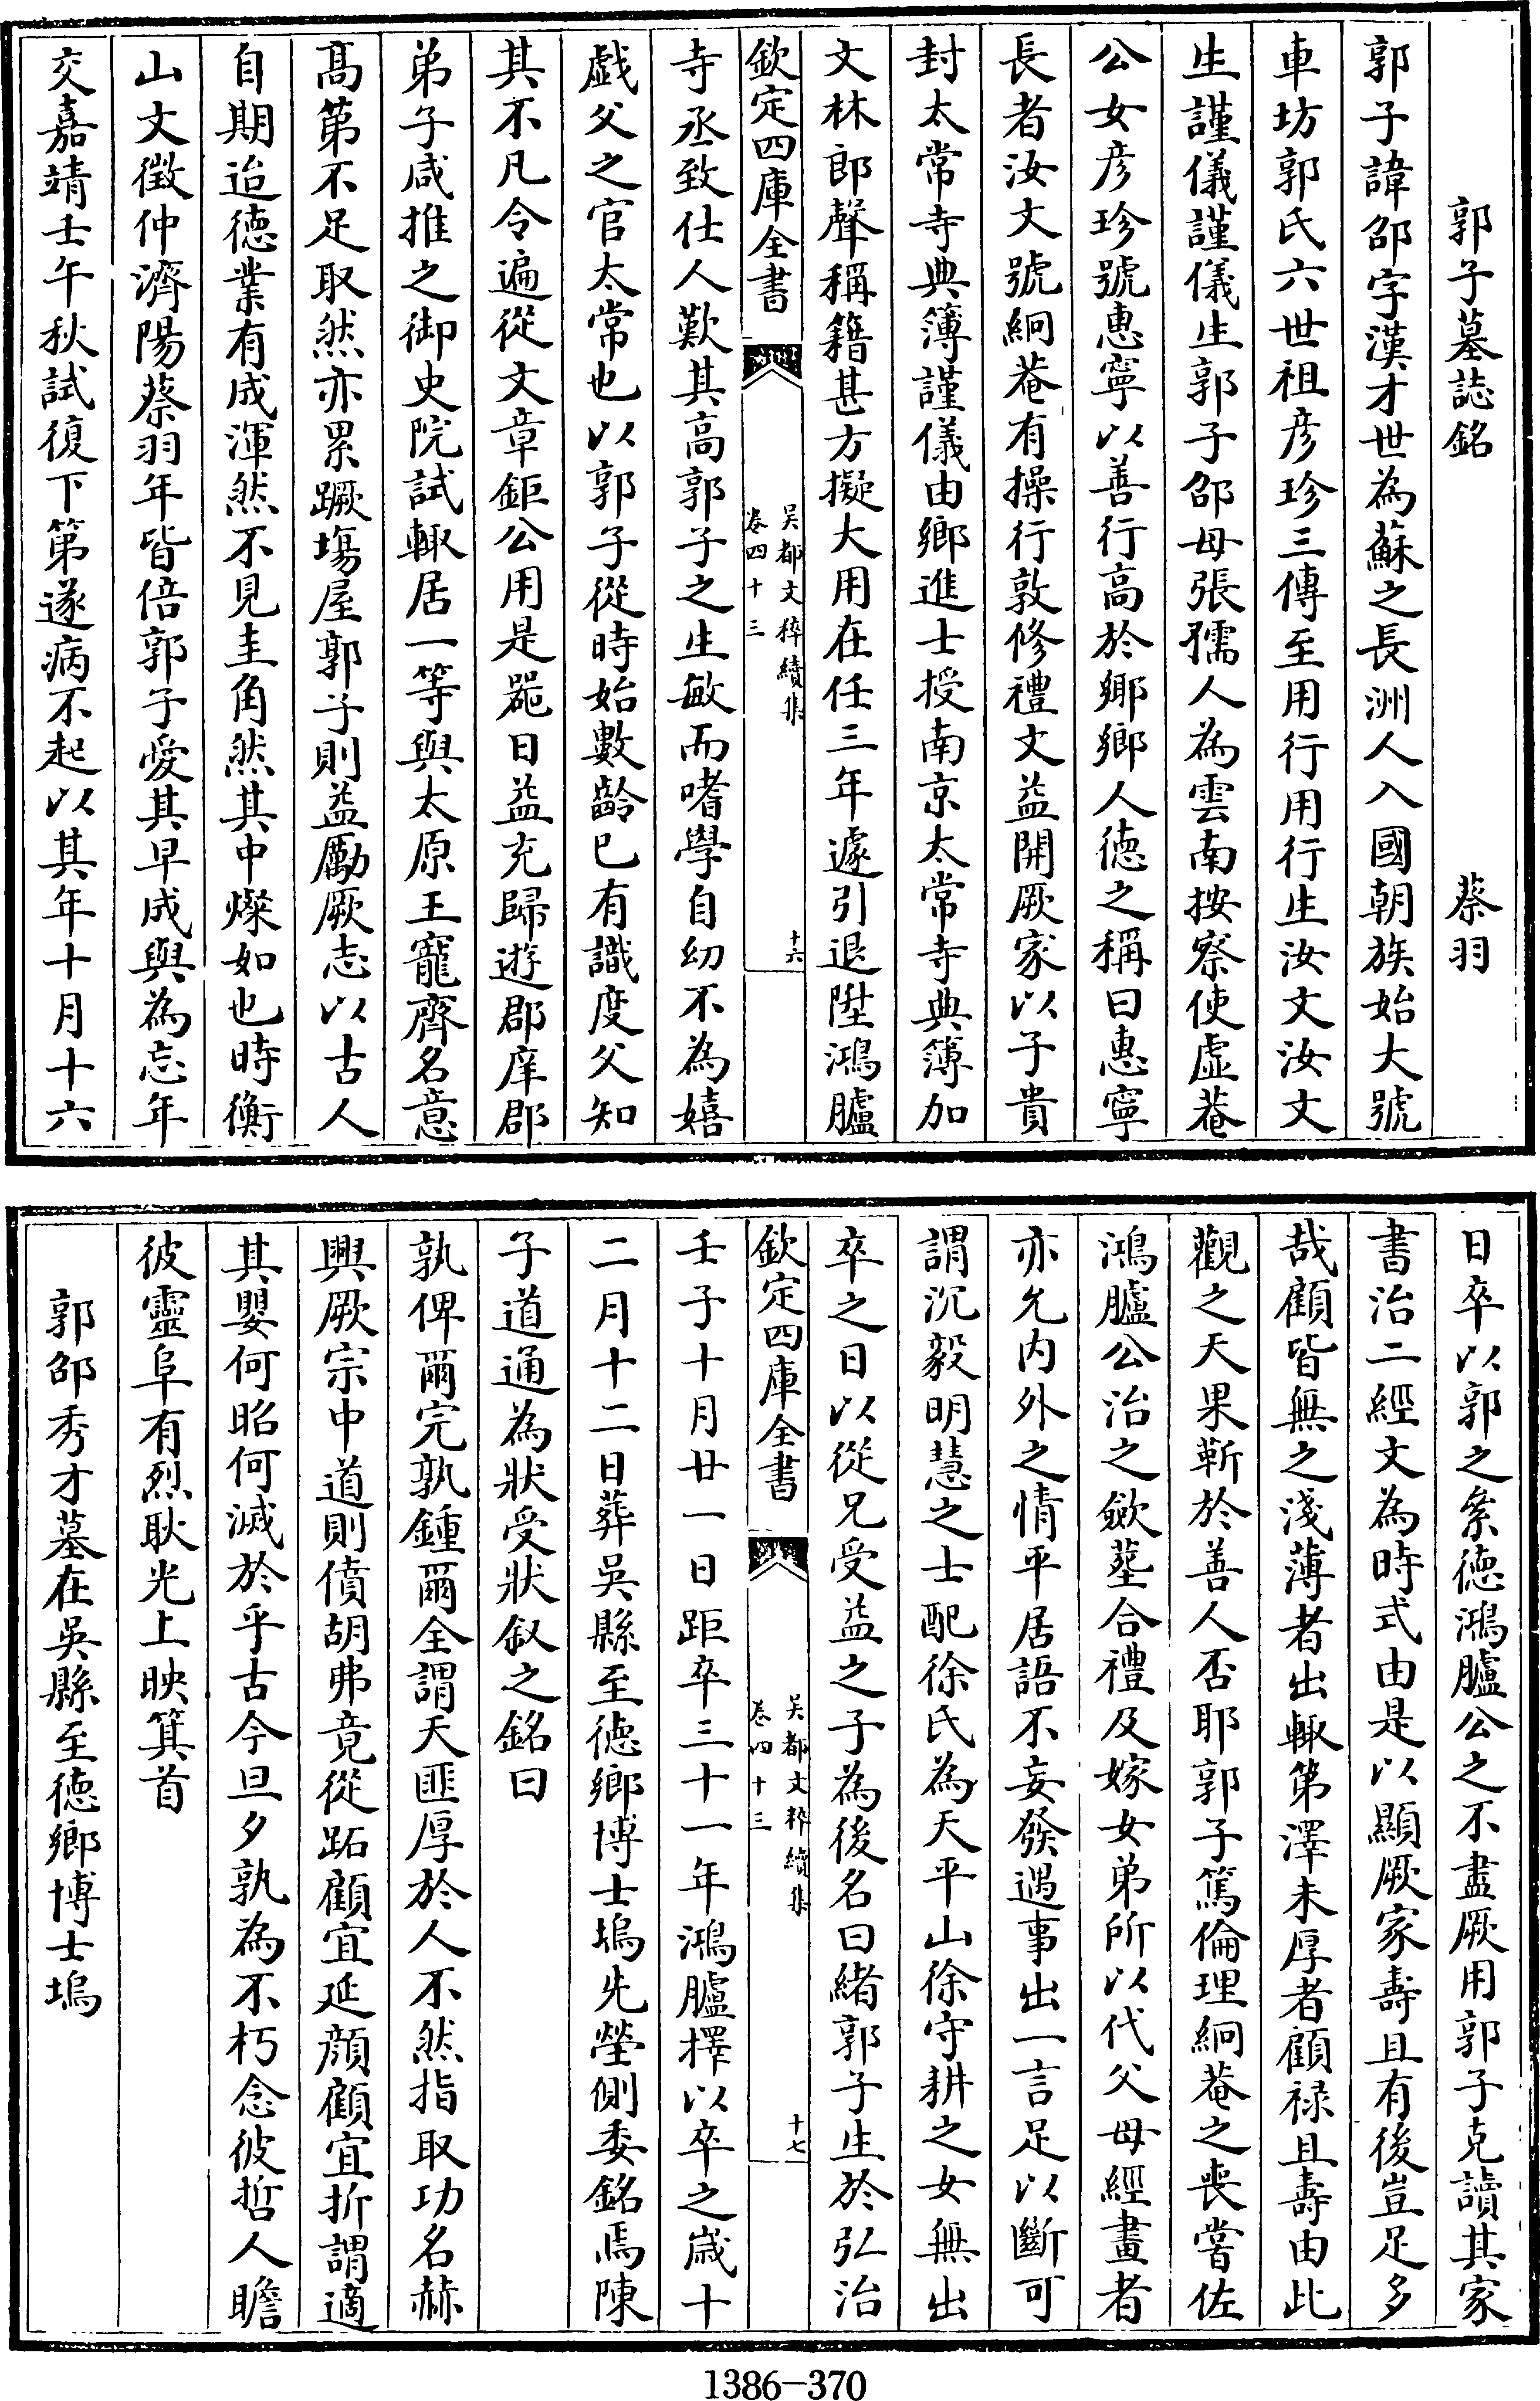 郭子墓誌銘　蔡羽
郭子諱邵字漢才世為蘇之長洲人入國朝族始大號
車坊郭氏六世祖彦珍三傳至用行用行生汝文汝文
生謹儀謹儀生郭子邵母張孺人為雲南按察使虚菴
公女彦珍號惠寧以善行高於鄉鄉人徳之稱曰惠寧
長者汝文號絅菴有操行敦修禮文益開厥家以子貴
封太常寺典簿謹儀由鄉進士授南京太常寺典簿加
文林郎聲稱籍甚方擬大用在任三年遽引退陞鴻臚
欽定四庫全書
吴都文粹續集
卷四十三
十六
寺丞致仕人歎其高郭子之生敏而嗜學自幼不為嬉
戯父之官太常也以郭子從時始數齡已有識度父知
其不凡令遍從文章鉅公用是噐日益充歸遊郡庠郡
弟子咸推之御史院試輙居一等與太原王寵齊名意
髙第不足取然亦累蹶塲屋郭子則益勵厥志以古人
自期迨徳業有成渾然不見圭角然其中燦如也時衡
山文徵仲濟陽蔡羽年皆倍郭子愛其早成與為忘年
交嘉靖壬午秋試復下第遂病不起以其年十月十六
日卒以郭之絫徳鴻臚公之不盡厥用郭子克讀其家
書治二經文為時式由是以顯厥家壽且有後豈足多
哉顧皆無之淺薄者出輙第澤未厚者顧禄且壽由此
觀之天果靳於善人否耶郭子篤倫理絅菴之喪嘗佐
鴻臚公治之歛塟合禮及嫁女弟所以代父母經畫者
亦允内外之情平居語不妄發遇事出一言足以斷可
謂沉毅明慧之士配徐氏為天平山徐守耕之女無出
卒之日以從兄受益之子為後名曰緒郭子生於弘治
欽定四庫全書
吴都文粹續集
卷四十三
十七
壬子十月廿一日距卒三十一年鴻臚擇以卒之嵗十
二月十二日葬吳縣至徳鄉博士塢先塋側委銘焉陳
子道通為狀受狀叙之銘曰
孰俾爾完孰鍾爾全謂天匪厚於人不然指取功名赫
興厥宗中道則僨胡弗竟從跖顧宜延顔顧宜折謂適
其嬰何昭何滅於乎古今旦夕孰為不朽念彼哲人瞻
彼靈阜有烈耿光上映箕首
郭邵秀才墓在吳縣至徳鄉博士塢
1386-370